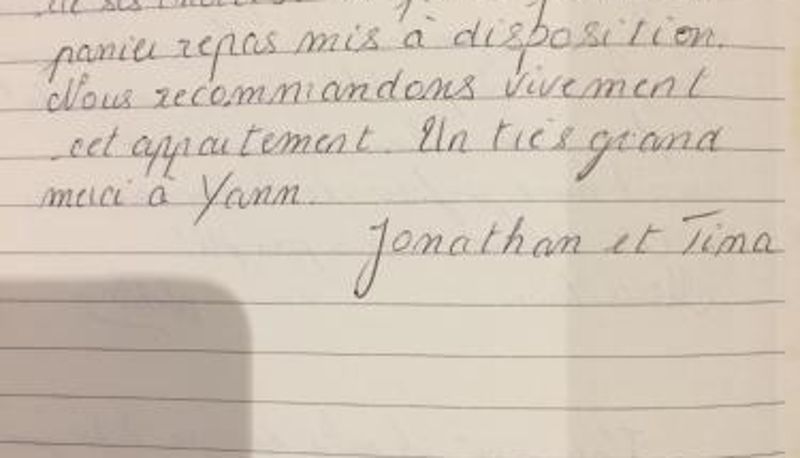 panier repas mis à disposition.
Nous recommandons vivement
cet appartement. Un très grand
merci à Yann.
Jonathan et Tima